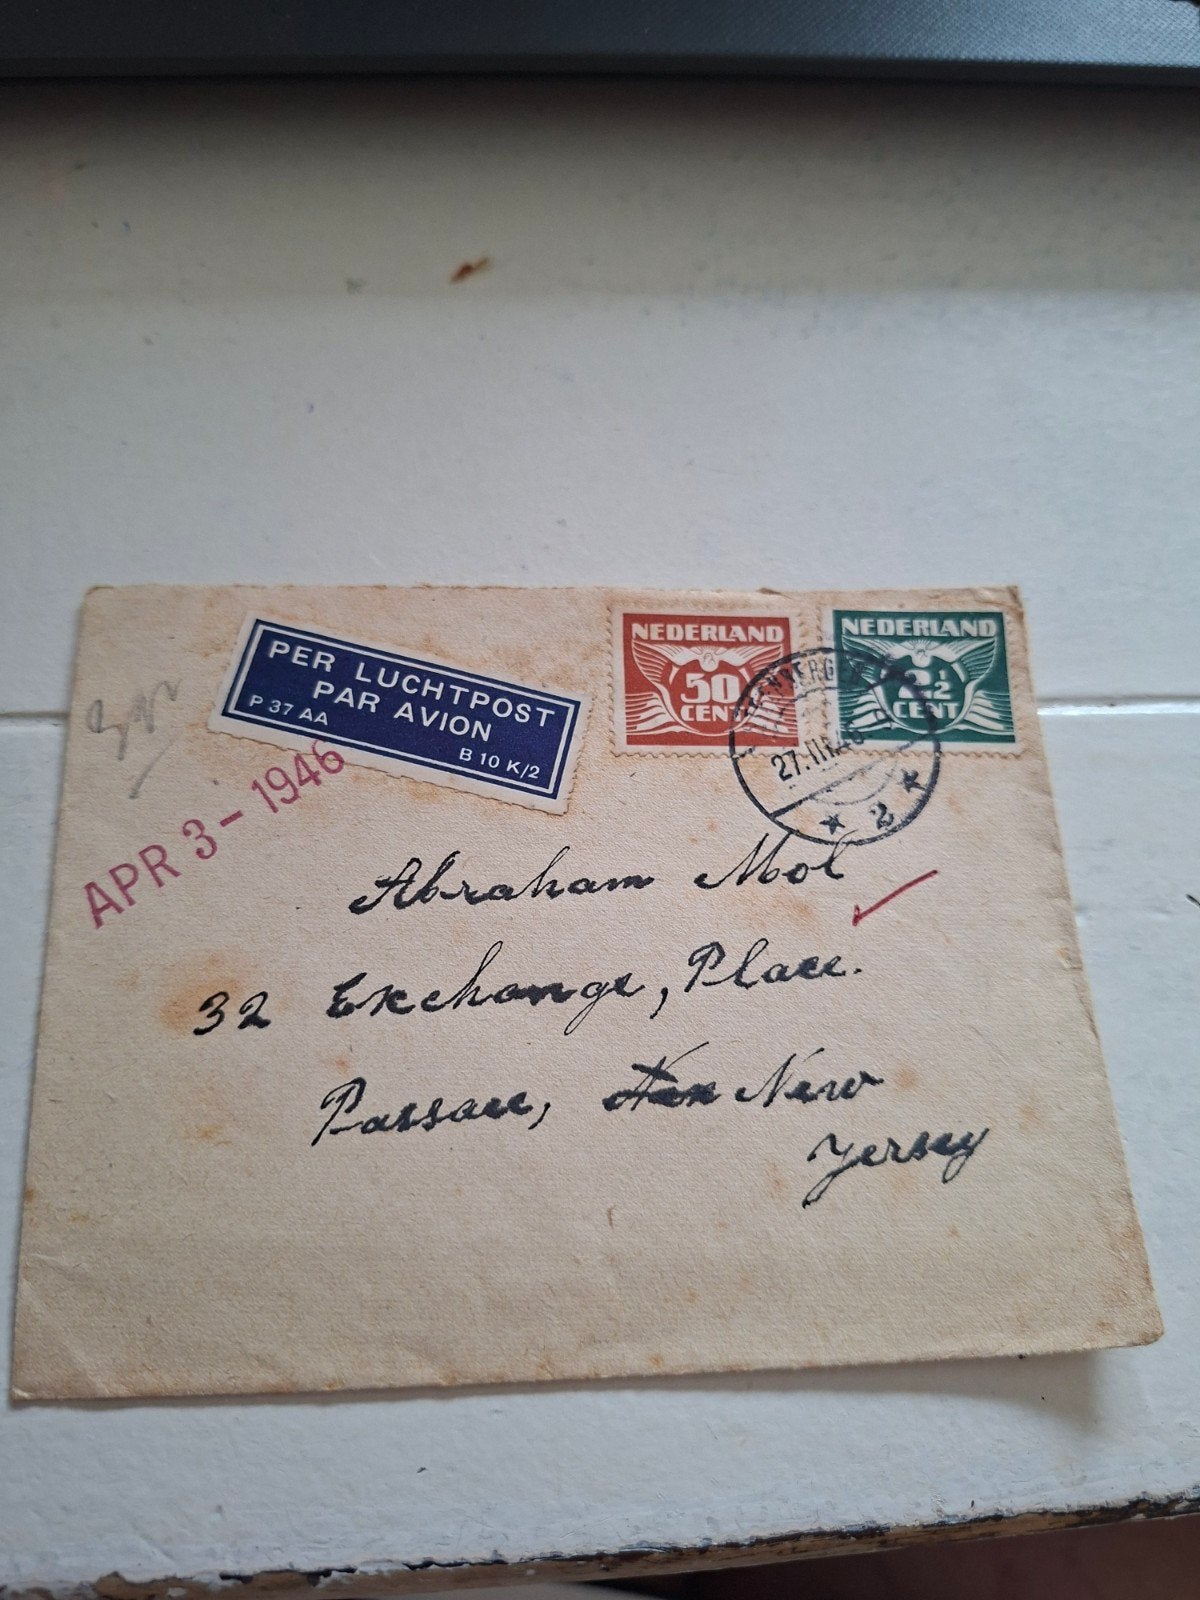 PER LUCHTPOST
PAR AVION
P 37 AA
B 10 K/2
NEDERLAND
50
CENT
NEDERLAND
2½
CENT
27.III.46
2
APR 3 - 1946
Abraham Mol
32 Exchange, Place.
Passaec, New
Jersey